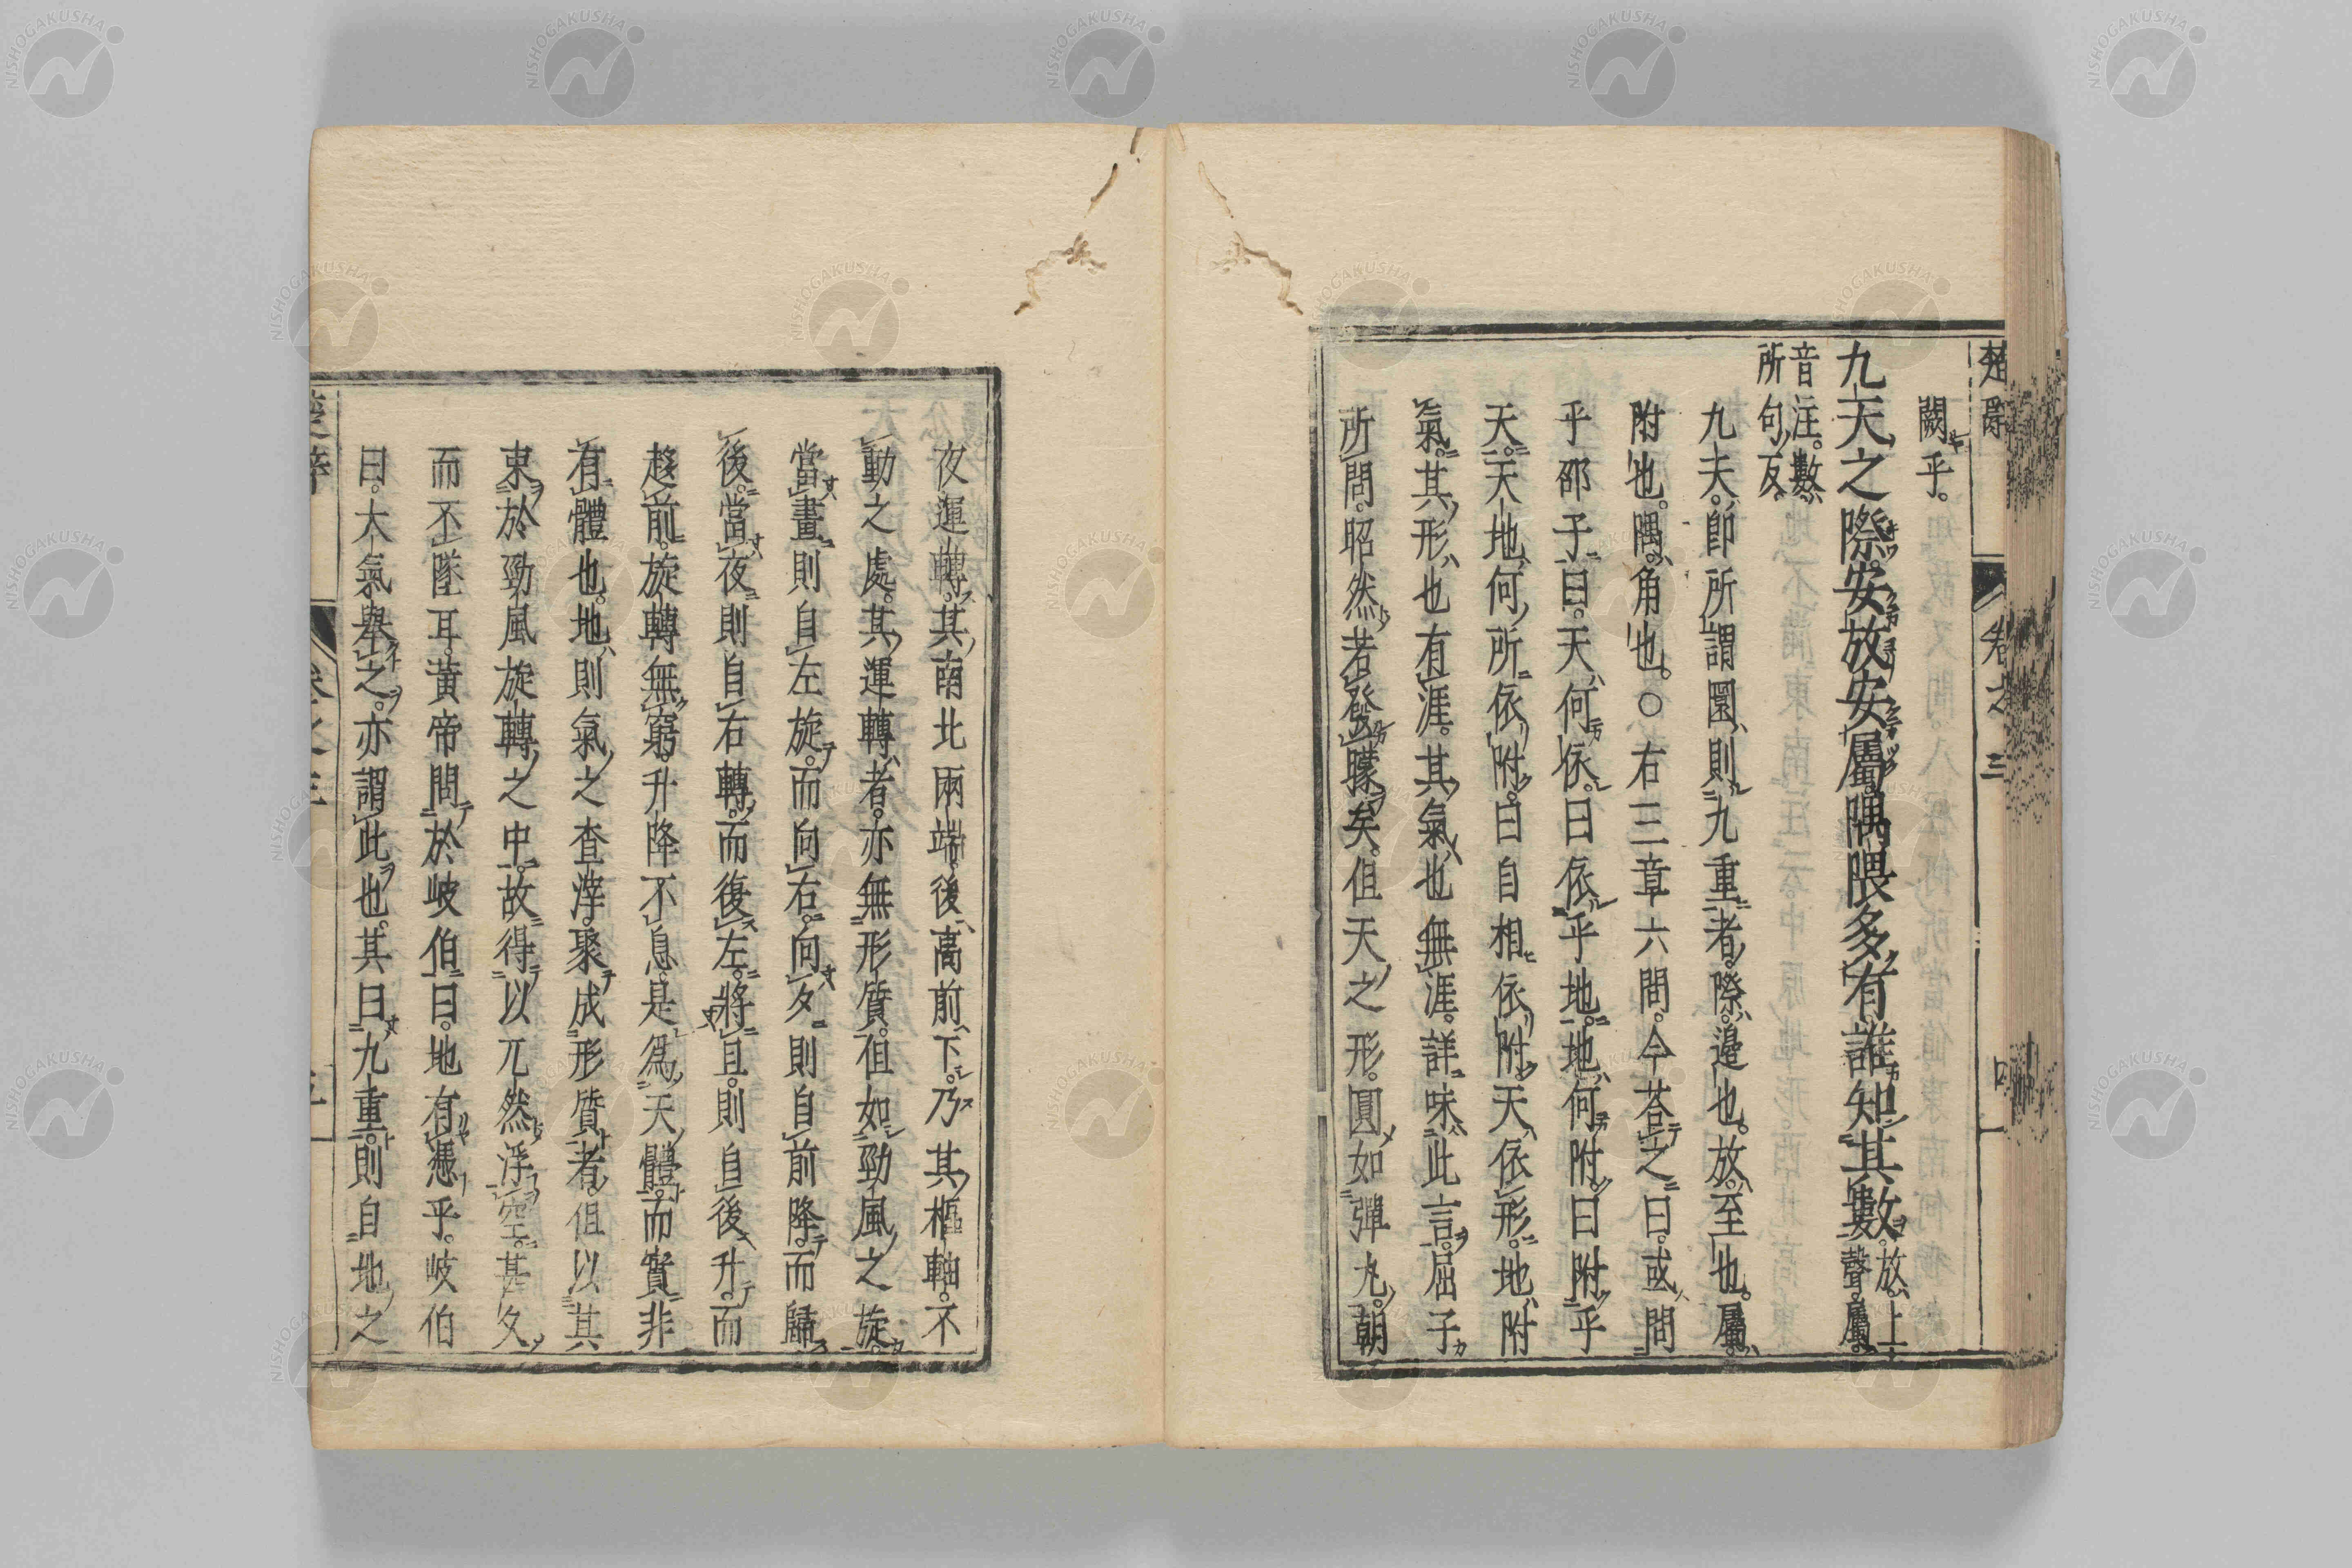 楚辭 卷之三
闕乎。
九天之際。安放安屬。隅隈多有誰知其數。放。上聲。屬。
音注。數。
所句反。
九天。卽所謂圜則九重者。際。邊也。放。至也。屬。
附也。隅。角也。○右三章六問。今荅之曰。或問
乎邵子曰。天何依。曰依乎地。地何附。曰附乎
天。天地何所依附。曰自相依附。天依形。地附
氣。其形也有涯。其氣也無涯。詳味此言。屈子
所問。昭然若發矇矣。但天之形。圓如彈丸。朝
夜運轉。其南北兩端。後高前下。乃其樞軸。不
動之處。其運轉者。亦無形質。但如勁風之旋。
當晝則自左旋。而向右。向夕則自前降。而歸
後。當夜則自右轉。而復左。將旦。則自後升。而
趍前。旋轉無窮。升降不息。是爲天體。而實非
有體也。地則氣之查滓。聚成形質者。但以其
束於勁風旋轉之中。故得以兀然浮空。甚久
而不墜耳。黃帝問於岐伯曰。地有憑乎。岐伯
曰。大氣舉之。亦謂此也。其曰九重。則自地之
楚辭 卷之三